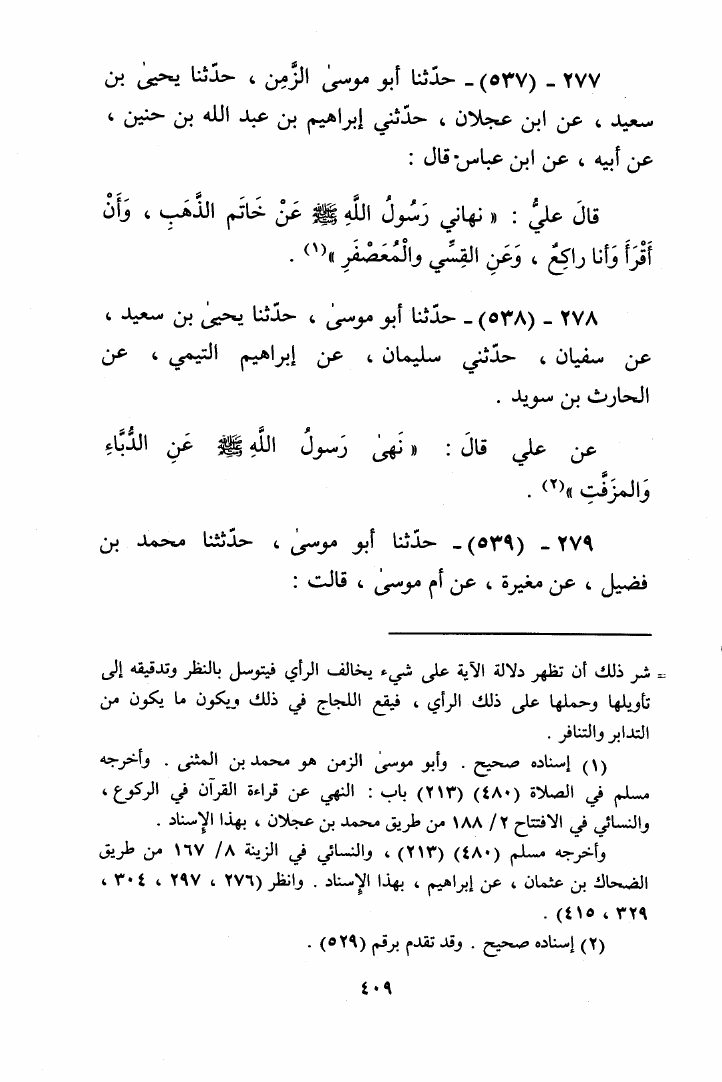 ٢٧٧ - (٥٣٧) - حدّثنا أبو موسىٰ الزَّمِن ، حدّثنا يحيىٰ بن
سعيد ، عن ابن عجلان ، حدّثني إبراهيم بن عبد الله بن حنين ،
عن أبيه ، عن ابن عباس قال :
قالَ عليُّ : « نهاني رَسُولُ اللَّهِ ﷺ عَنْ خَاتَم الذَّهَبِ ، وَأَنْ
أَقْرَأَ وَأَنا راكِعٌ ، وَعَنِ القِسِّي والْمُعَصْفَرِ »(١) .
٢٧٨ - (٥٣٨) - حدّثنا أبو موسىٰ ، حدّثنا يحيىٰ بن سعيد ،
عن سفيان ، حدّثني سليمان ، عن إبراهيم التيمي ، عن
الحارث بن سويد .
عن علي قالَ : « نَهىٰ رَسولُ اللَّهِ ﷺ عَنِ الدُّبَّاءِ
وَالمزَفَّتِ »(٢) .
٢٧٩ - (٥٣٩) - حدّثنا أبو موسىٰ ، حدّثنا محمد بن
فضيل ، عن مغيرة ، عن أم موسىٰ ، قالت :
= شر ذلك أن تظهر دلالة الآية على شيء يخالف الرأي فيتوسل بالنظر وتدقيقه إلى
تأويلها وحملها على ذلك الرأي ، فيقع اللجاج في ذلك ويكون ما يكون من
التدابر والتنافر .
(١) إسناده صحيح . وأبو موسىٰ الزمن هو محمد بن المثنى . وأخرجه
مسلم في الصلاة (٤٨٠) (٢١٣) باب : النهي عن قراءة القرآن في الركوع ،
والنسائي في الافتتاح ٢/ ١٨٨ من طريق محمد بن عجلان ، بهذا الإسناد .
وأخرجه مسلم (٤٨٠) (٢١٣) ، والنسائي في الزينة ٨/ ١٦٧ من طريق
الضحاك بن عثمان ، عن إبراهيم ، بهذا الإسناد . وانظر (٢٧٦ ، ٢٩٧ ، ٣٠٤ ،
٣٢٩ ، ٤١٥) .
(٢) إسناده صحيح . وقد تقدم برقم (٥٢٩) .
٤٠٩